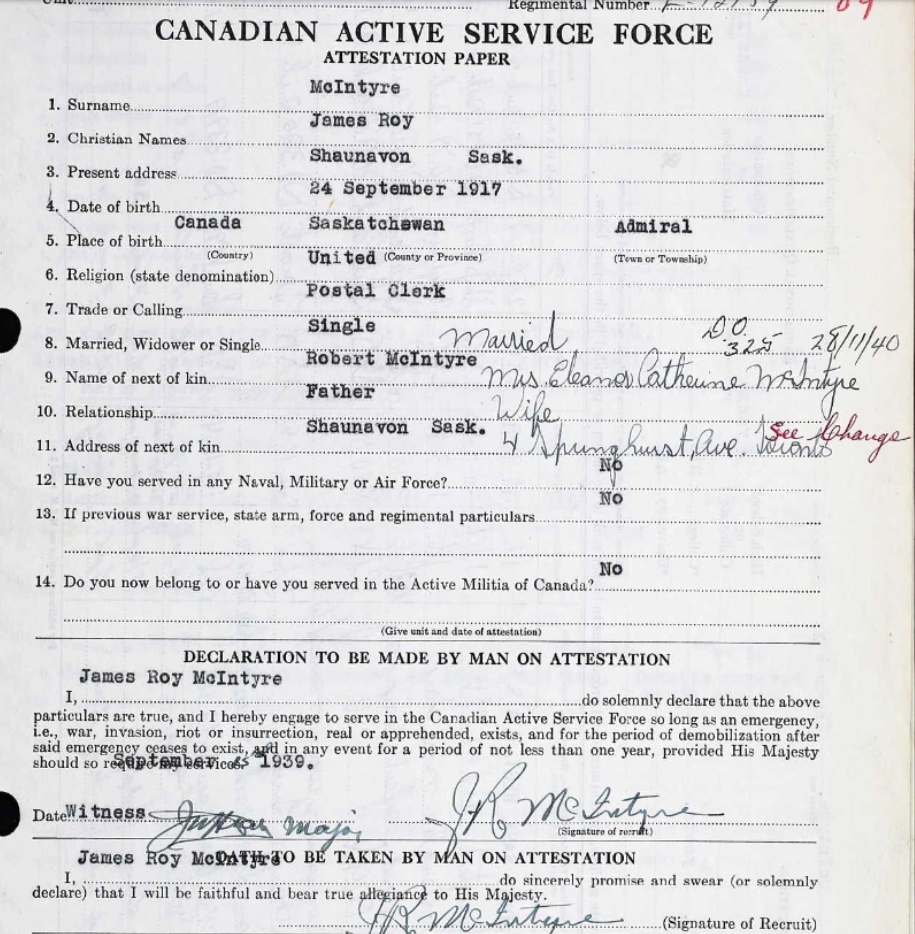 Regimental Number
CANADIAN ACTIVE SERVICE FORCE
ATTESTATION PAPER
McIntyre
1. Surname
James Roy
2. Christian Names
Shaunavon Sask.
3. Present address
24 September 1917
4. Date of birth
Canada Saskatchewan Admiral
5. Place of birth
(Country) (County or Province) (Town or Township)
United
6. Religion (state denomination)
Postal Clerk
7. Trade or Calling
Single
8. Married, Widower or Single Married D.O. 325 28/11/40
Robert McIntyre
9. Name of next of kin Mrs. Eleanor Catherine McIntyre
Father
10. Relationship Wife
Shaunavon Sask. See Change
11. Address of next of kin 4 Springhurst Ave. Toronto
No
12. Have you served in any Naval, Military or Air Force?
No
13. If previous war service, state arm, force and regimental particulars
No
14. Do you now belong to or have you served in the Active Militia of Canada?
(Give unit and date of attestation)
DECLARATION TO BE MADE BY MAN ON ATTESTATION
James Roy McIntyre
I, do solemnly declare that the above
particulars are true, and I hereby engage to serve in the Canadian Active Service Force so long as an emergency,
i.e., war, invasion, riot or insurrection, real or apprehended, exists, and for the period of demobilization after
said emergency ceases to exist, and in any event for a period of not less than one year, provided His Majesty
should so require my services.
September 1939.
Date Witness Major J R McIntyre
(Signature of recruit)
James Roy McIntyre
OATH TO BE TAKEN BY MAN ON ATTESTATION
I, do sincerely promise and swear (or solemnly
declare) that I will be faithful and bear true allegiance to His Majesty.
J R McIntyre (Signature of Recruit)